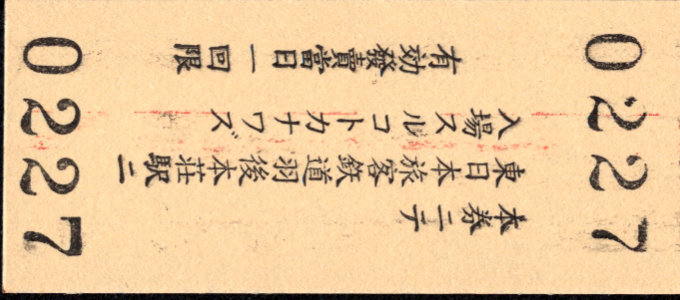 0227
本券ニテ
東日本旅客鉄道羽後本荘駅ニ
入場スルコトカナワズ
有効發賣當日一回限
0227